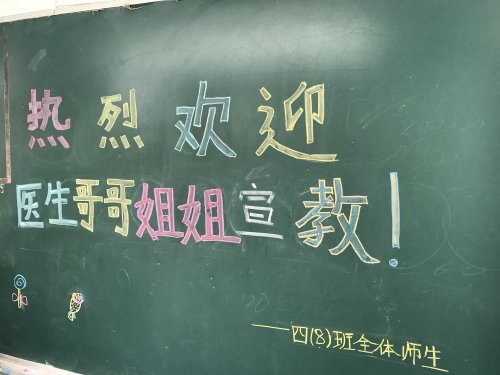 热烈欢迎
医生哥哥姐姐宣教!
——四(8)班全体师生